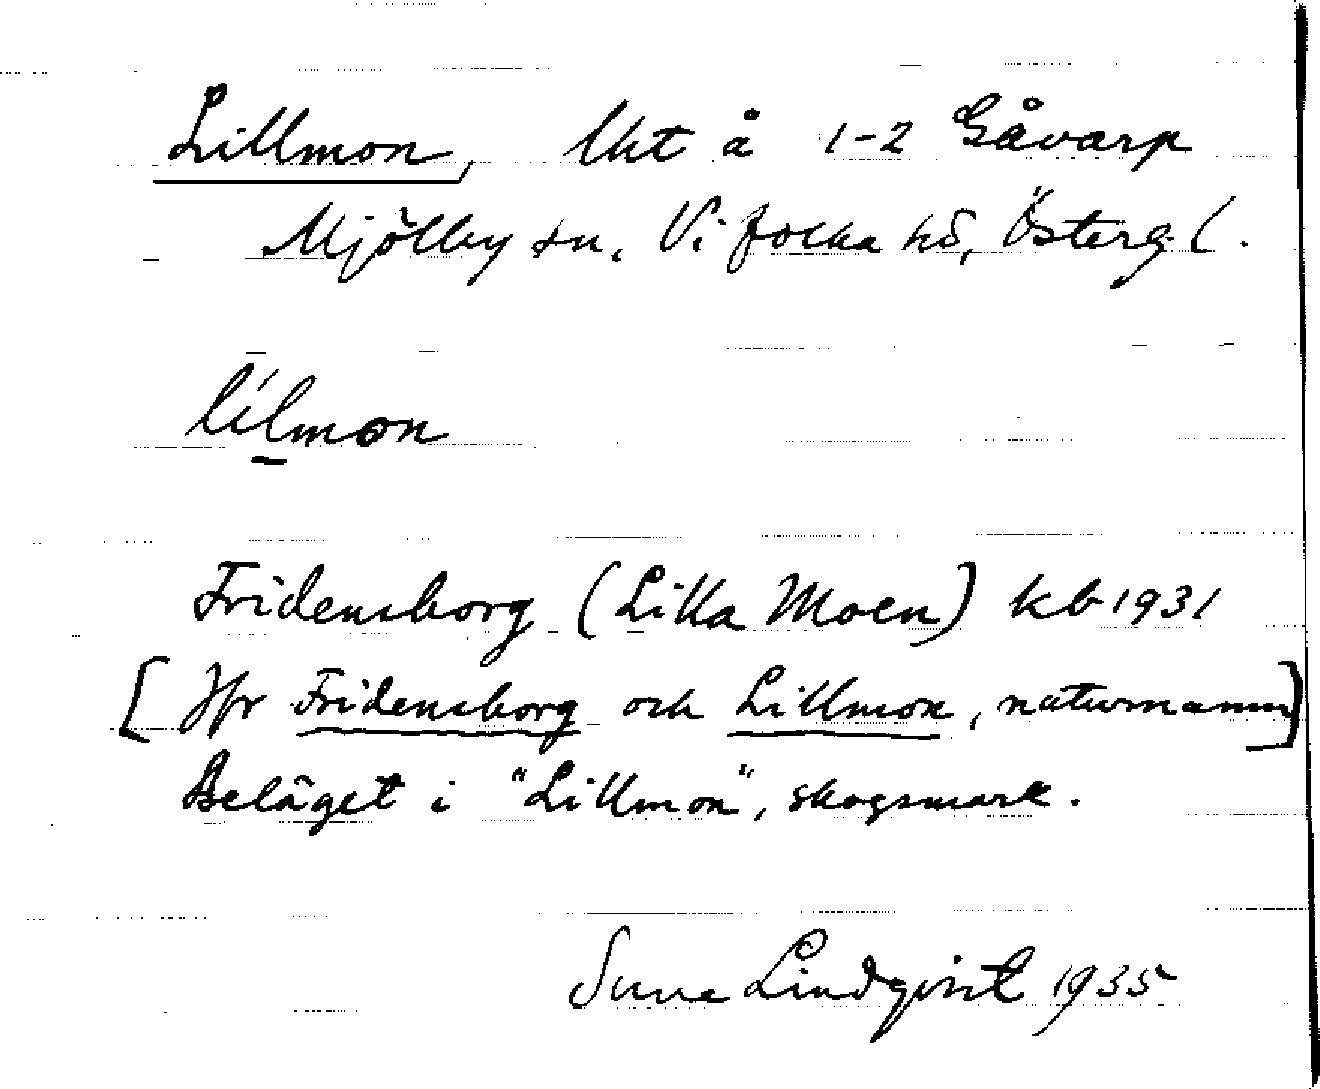 Lillmon, lht å 1-2 Gåvarp
Mjölby sn, Vifolka hd, Österg l.
lílmon
Fridensborg (Lilla Moen) kb 1931
[Jfr Fridensborg och Lillmon, naturnamn]
Beläget i "Lillmon", skogsmark.
Sune Lindqvist 1935